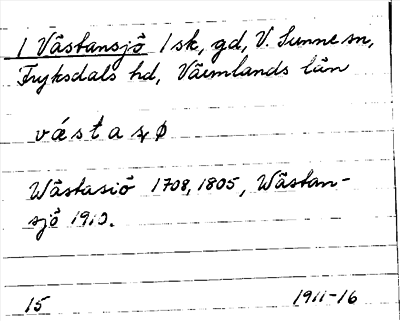 1 Västansjö 1 sk, gd, V. Sunne sn,
Fryksdals hd, Värmlands län
Wästasiö 1708, 1805, Wästan-
sjö 1910.
15 1911-16